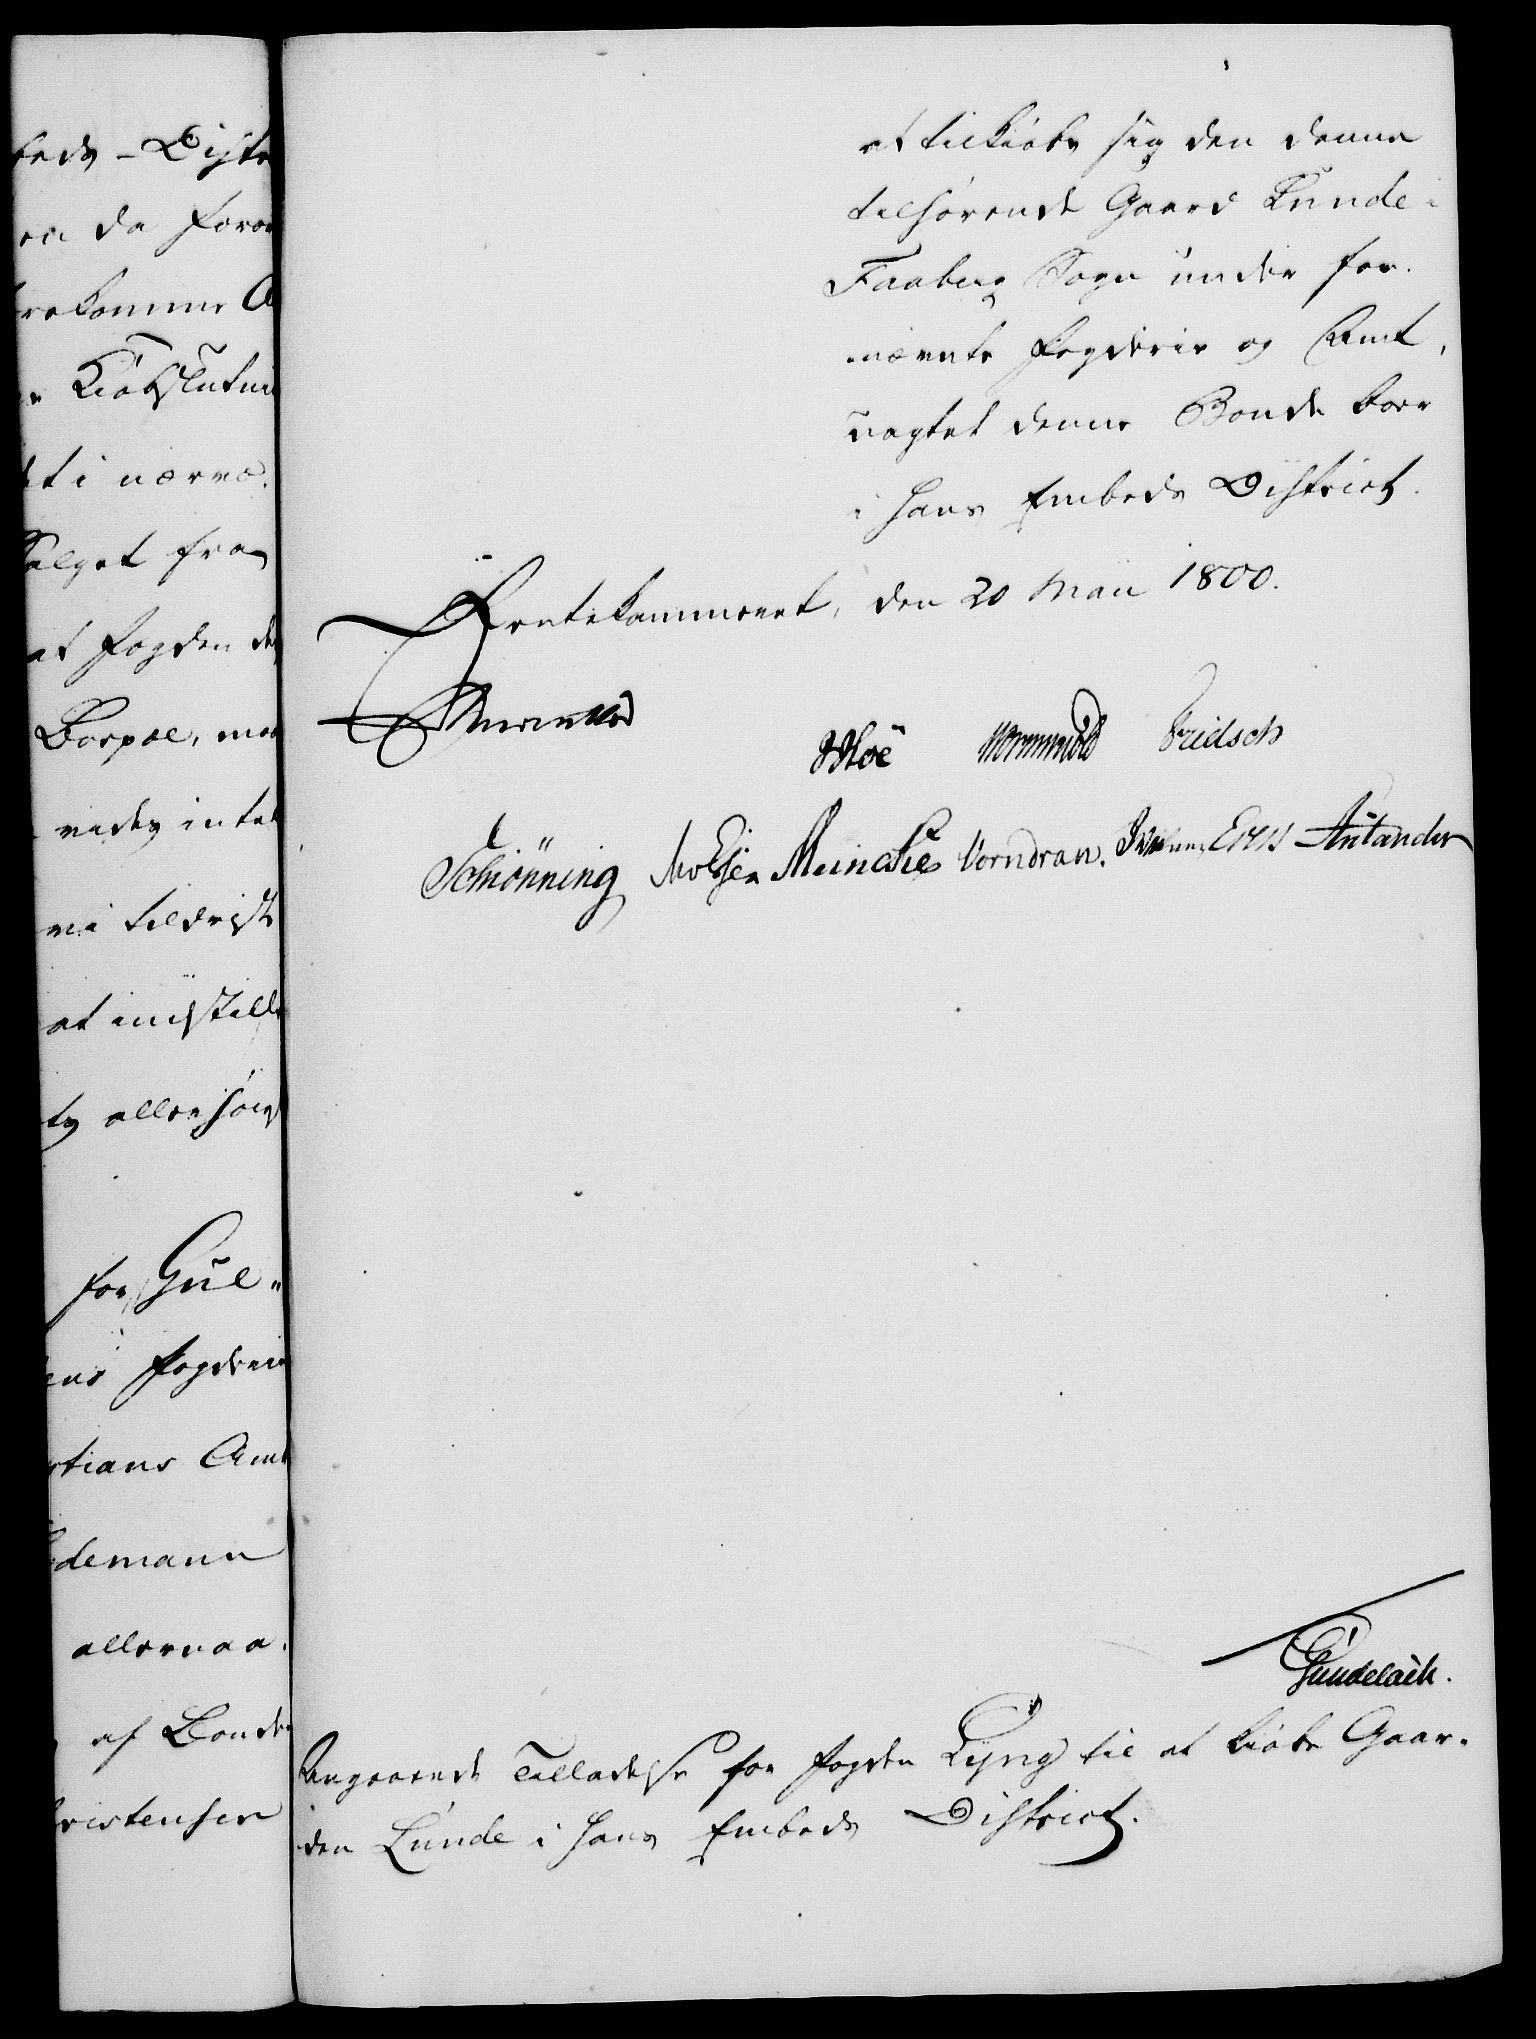 beds-Distr
da foror
rekomme A
Kiøbslutni
et i nærvæ-
Salget fra
at Fogden de
Borpæl, maa
vides intet
vi tildrist
at indstille
ty allerhøis
for Gul-
ens Fogderie
stians Amt
demann
allernaa-
af Bonde
ristensen
at tilkiøbe sig den denne
tilhørende Gaard Lunde i
Faaberg Sogn under for-
nævnte Fogderie og Amt,
uagtet denne Bonde boer
i hans Embeds District.
Rentekammeret, den 20 Maii 1800.
Reventlow
Moe Wormskiold Fridsch
Schiønning Meincke Vorndran. Evers Aulander
Gundelach.
Angaaende Tilladelse for Fogden Lyng til at kiøbe Gaar-
den Lunde i hans Embeds District.